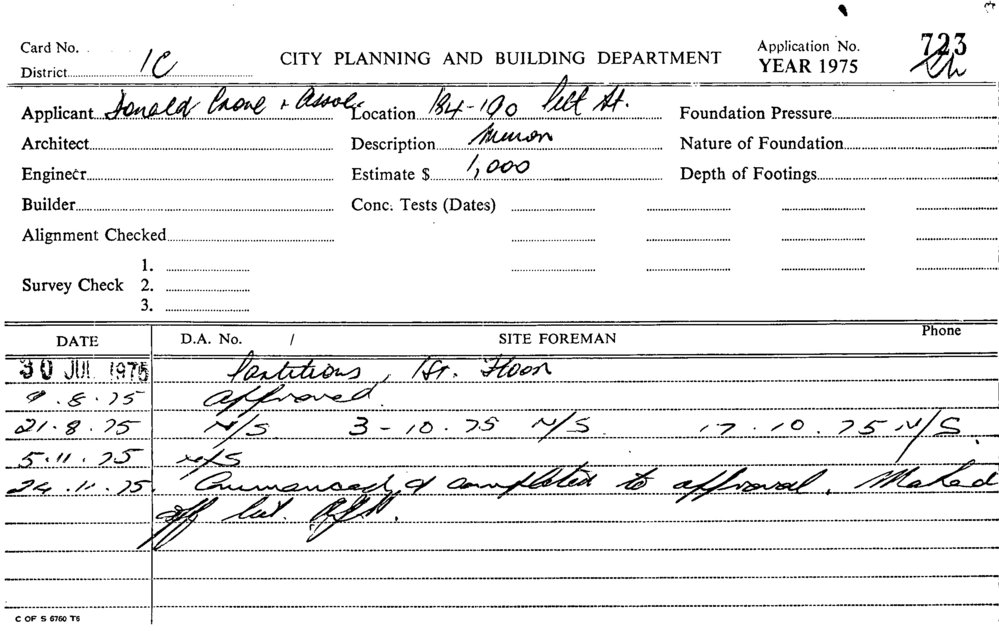 Card No.
District 1C
CITY PLANNING AND BUILDING DEPARTMENT
Application No. 723
YEAR 1975
Applicant Donald Crone + Assoc. Location 184-190 Pitt St. Foundation Pressure
Architect Description Minor Nature of Foundation
Engineer Estimate $ 1,000 Depth of Footings
Builder Conc. Tests (Dates)
Alignment Checked
1.
Survey Check 2.
3.
DATE D.A. No. / SITE FOREMAN Phone
30 JUL 1975 Partitions, 1st. Floor
9.8.75 Approved.
21.8.75 N/S 3-10.75 N/S 17.10.75 N/S.
5.11.75 N/S
24.11.75. Commenced & completed to approval. Marked
off list.
C OF S 6760 T6